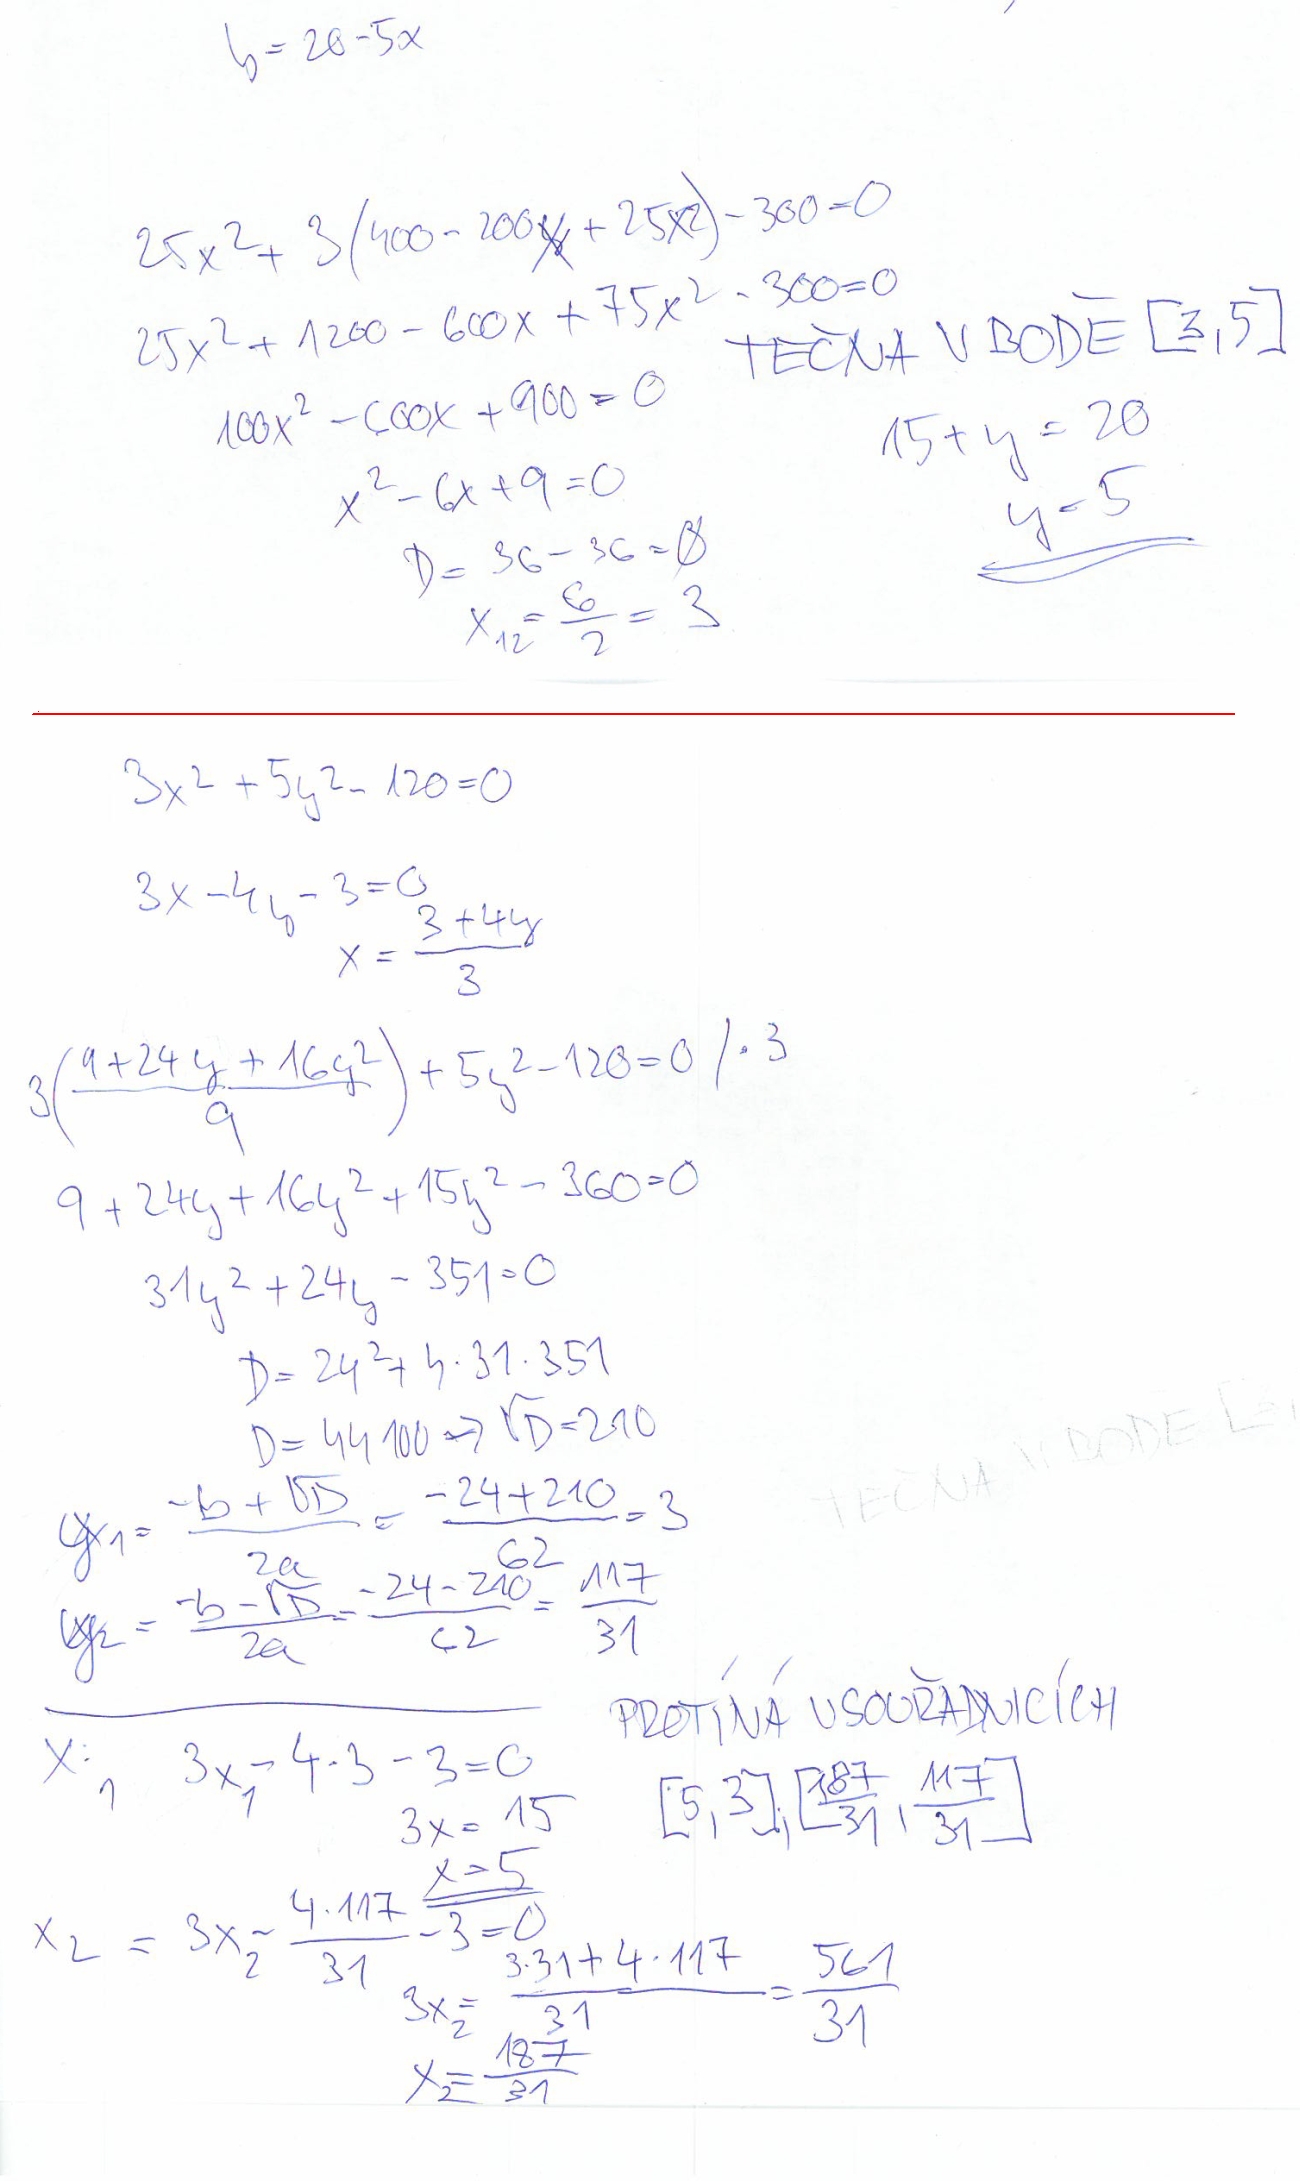 y = 20-5x
25x² + 3(400 - 200x + 25x²) - 300 = 0
25x² + 1200 - 600x + 75x² - 300 = 0
TEČNA V BODĚ [3,5]
100x² - 600x + 900 = 0
15 + y = 20
x² - 6x + 9 = 0
y = 5
D = 36 - 36 = 0
x₁₂ = 6/2 = 3
3x² + 5y² - 120 = 0
3x - 4y - 3 = 0
x = (3 + 4y)/3
3((9 + 24y + 16y²)/9) + 5y² - 120 = 0 /·3
9 + 24y + 16y² + 15y² - 360 = 0
31y² + 24y - 351 = 0
D = 24² + 4·31·351
D = 44100 → √D = 210
y₁ = (-b + √D)/2a = (-24 + 210)/62 = 3
y₂ = (-b - √D)/2a = (-24 - 210)/62 = 117/31
PROTÍNÁ V SOUŘADNICÍCH
[5,3], [187/31, 117/31]
x₁: 3x₁ - 4·3 - 3 = 0
3x = 15
x = 5
x₂ = 3x₂ - 4·117/31 - 3 = 0
3x₂ = (3·31 + 4·117)/31 = 561/31
x₂ = 187/31